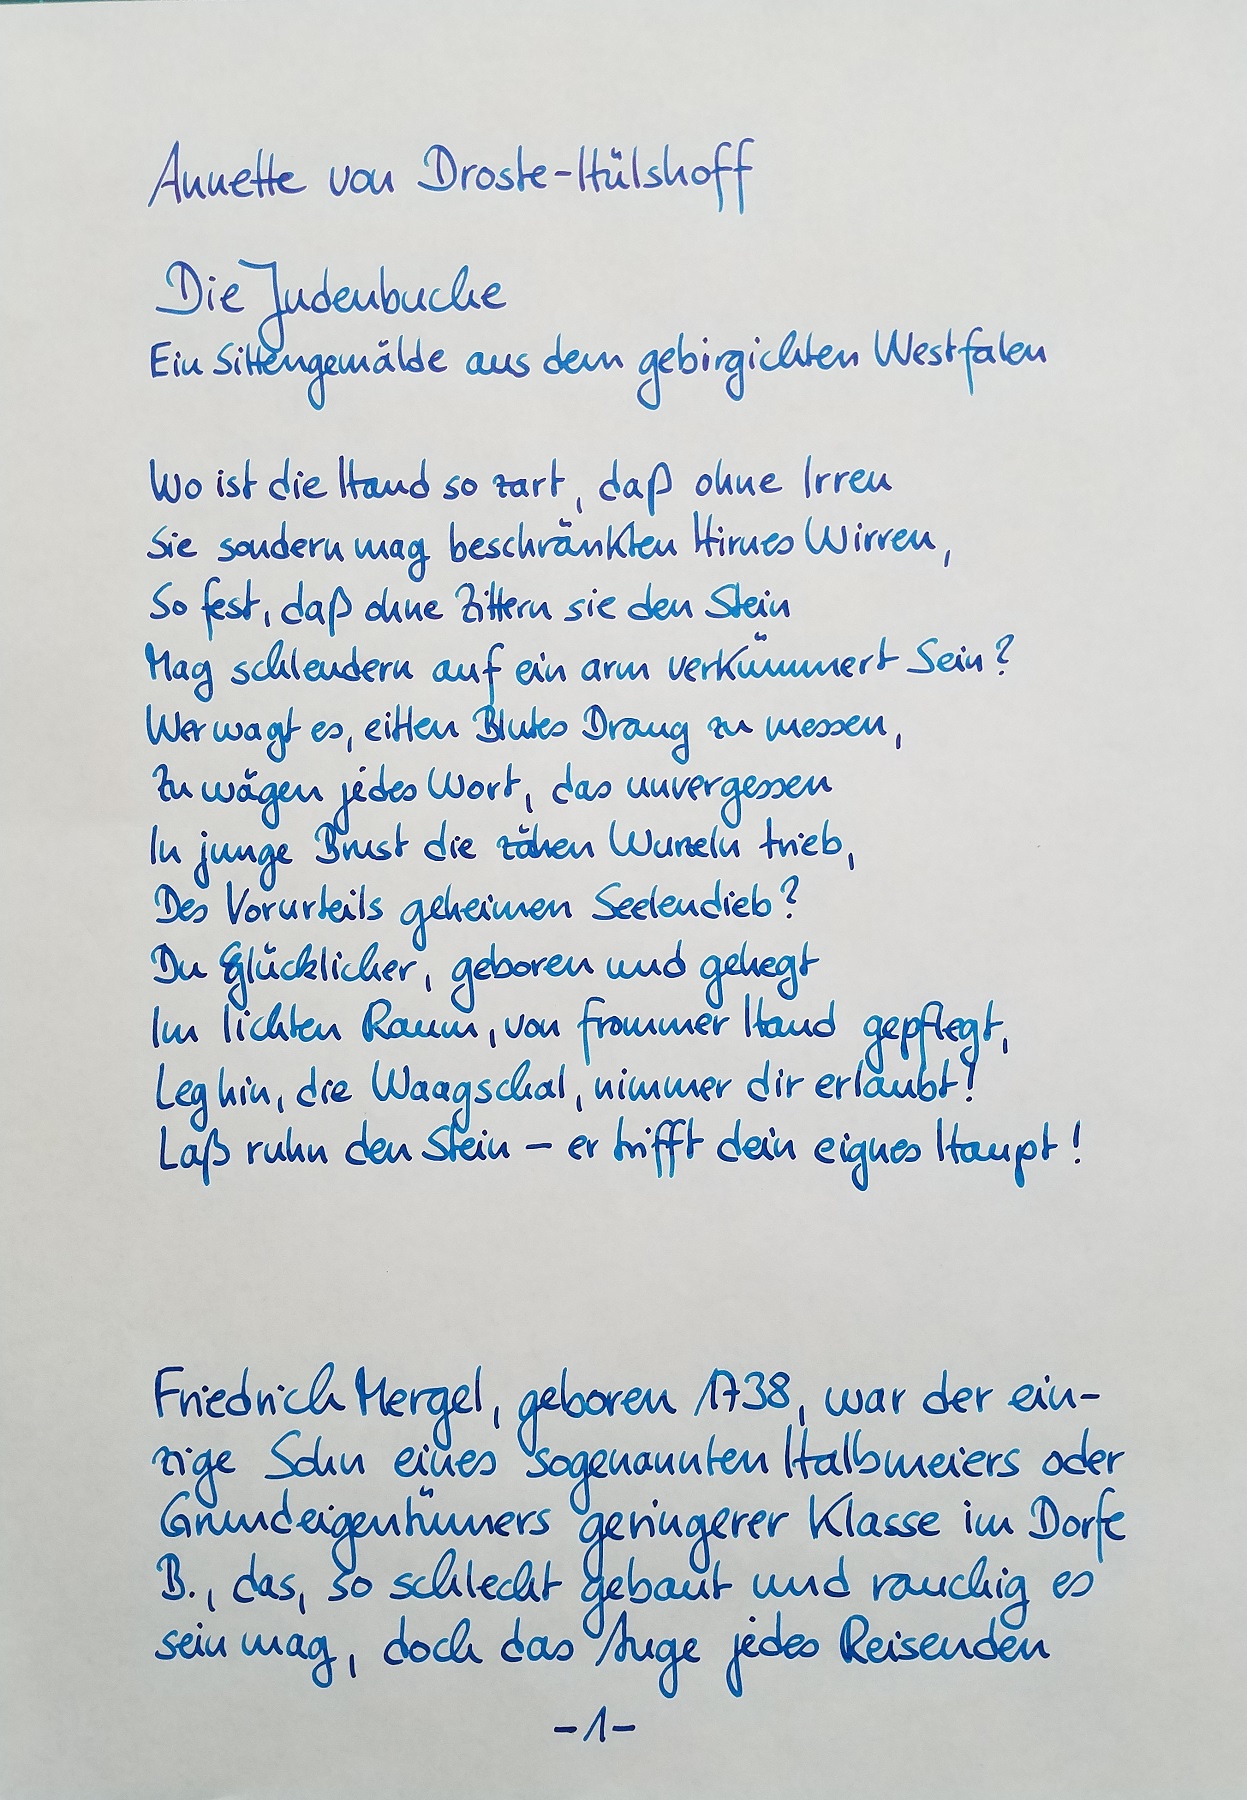 Annette von Droste-Hülshoff
Die Judenbuche
Ein Sittengemälde aus dem gebirgichten Westfalen
Wo ist die Hand so zart, daß ohne Irren
Sie sondern mag beschränkten Hirnes Wirren,
So fest, daß ohne Zittern sie den Stein
Mag schleudern auf ein arm verkümmert Sein?
Wer wagt es, eitlen Blutes Drang zu messen,
Zu wägen jedes Wort, das unvergessen
In junge Brust die zähen Wurzeln trieb,
Des Vorurteils geheimen Seelendieb?
Du Glücklicher, geboren und gehegt
Im lichten Raum, von frommer Hand gepflegt,
Leg hin, die Waagschal, nimmer dir erlaubt!
Laß ruhn den Stein – er trifft dein eignes Haupt!
Friedrich Mergel, geboren 1738, war der ein-
zige Sohn eines sogenannten Halbmeiers oder
Grundeigentümers geringerer Klasse im Dorfe
B., das, so schlecht gebaut und rauchig es
sein mag, doch das Auge jedes Reisenden
-1-